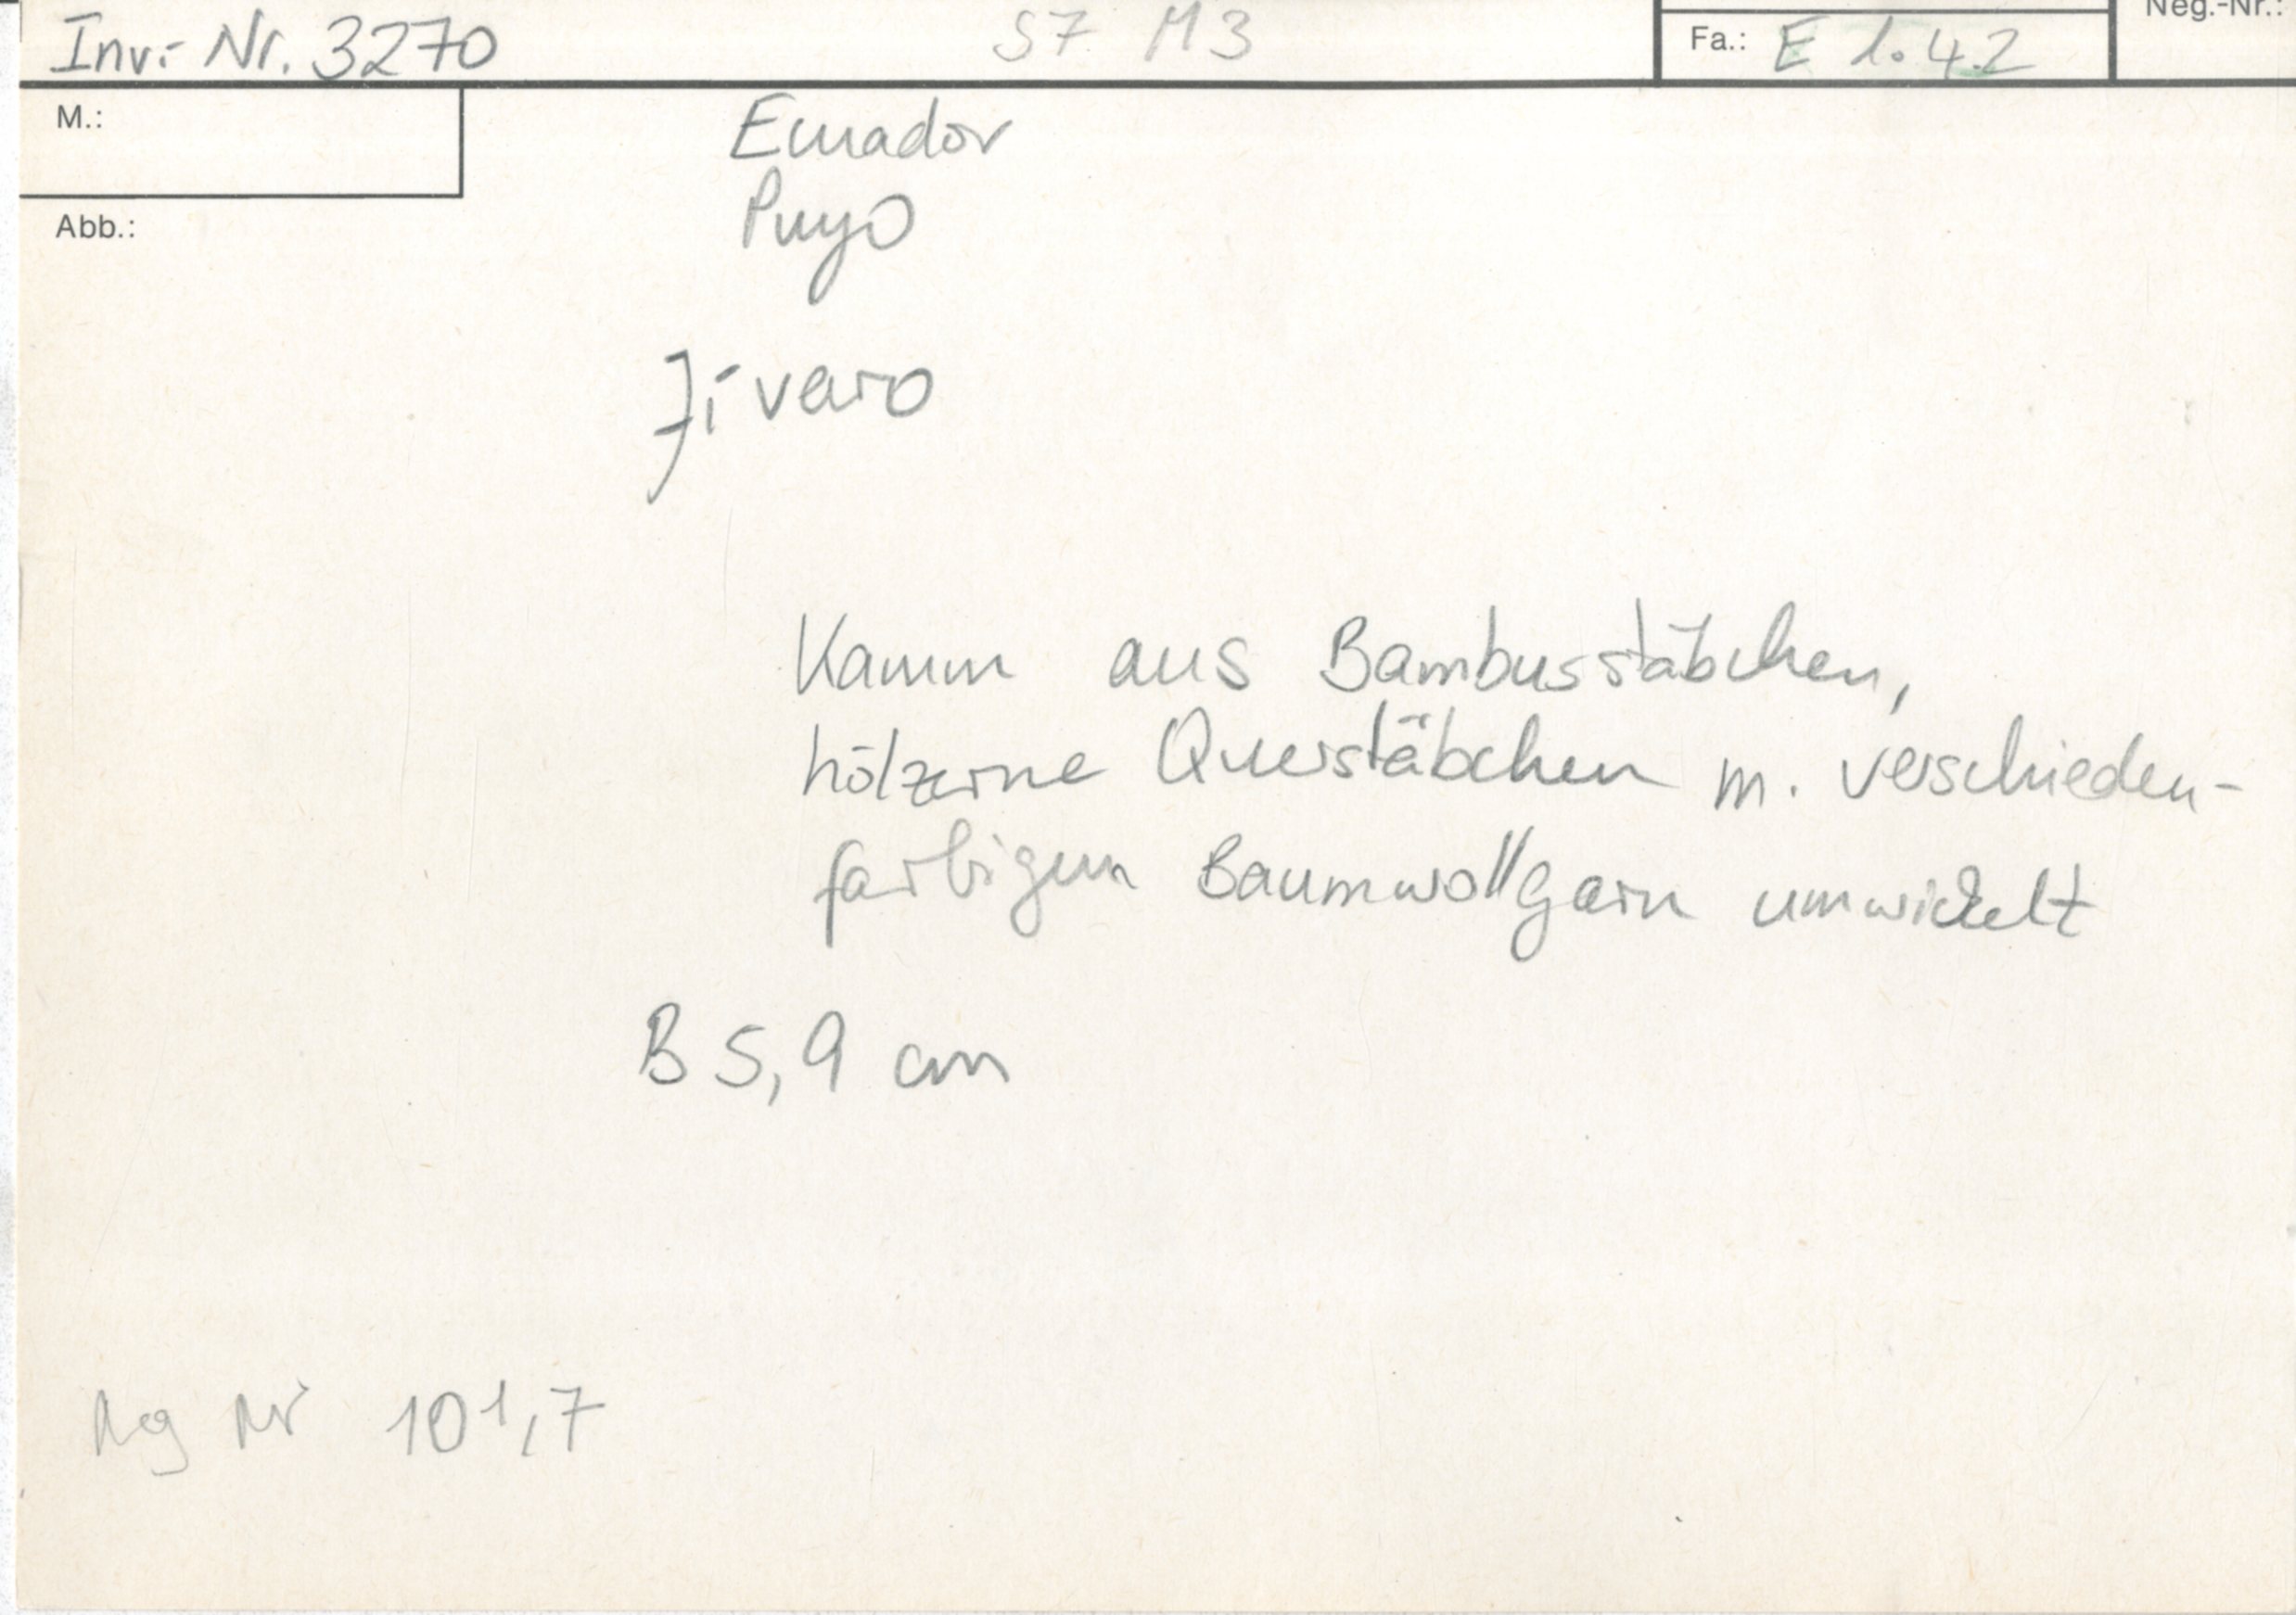 Inv.-Nr. 3270
S7 M3
Fa.: E 1.4.2
Neg.-Nr.:
M.:
Ecuador
Puyo
Abb.:
Jívaro
Kamm aus Bambusstäbchen,
hölzerne Querstäbchen m. verschieden-
farbigem Baumwollgarn umwickelt
B 5,9 cm
Neg Nr 101,7